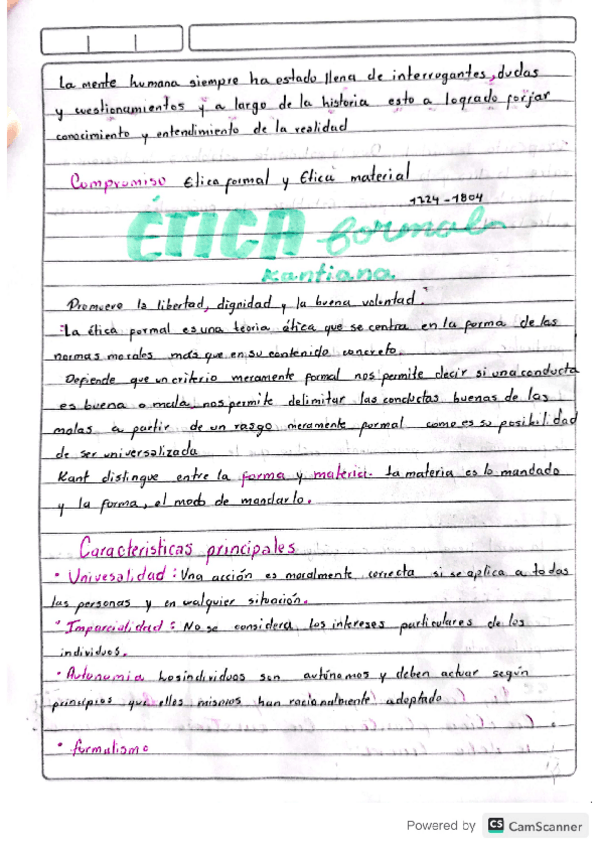 La mente humana siempre ha estado llena de interrogantes, dudas
y cuestionamientos y a largo de la historia esto a logrado forjar
conocimiento y entendimiento de la realidad
Compromiso Etica formal y Etica material
1724-1804
ÉTICA formal
Kantiana.
Promueve la libertad, dignidad y la buena voluntad.
La ética formal es una teoría ética que se centra en la forma de las
normas morales más que en su contenido concreto.
Defiende que un criterio meramente formal nos permite decir si una conducta
es buena o mala, nos permite delimitar las conductas buenas de las
malas a partir de un rasgo meramente formal como es su posibilidad
de ser universalizada
Kant distingue entre la forma y materia. la materia es lo mandado
y la forma, el modo de mandarlo.
Caracteristicas principales
• Univesalidad: Una acción es moralmente correcta si se aplica a todas
las personas y en cualquier situación.
• Imparcialidad: No se considera los intereses particulares de los
individuos.
• Autonomia Los individuos son autónomos y deben actuar según
principios que ellos mismos han racionalmente adoptado
• formalismo
Powered by CS CamScanner